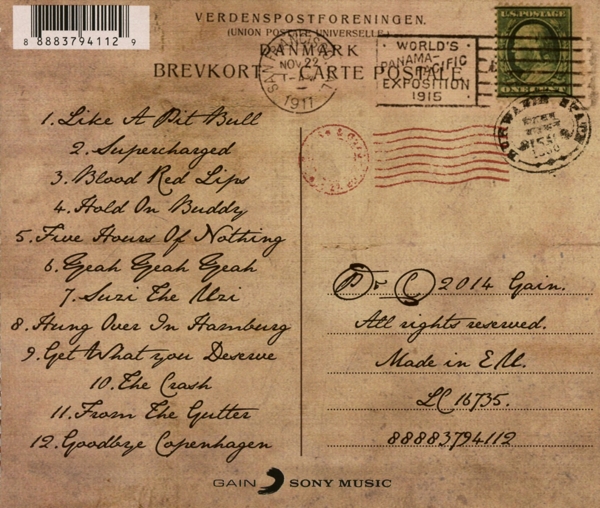 VERDENSPOSTFORENINGEN.
(UNION POSTALE UNIVERSELLE.)
DANMARK
BREVKORT CARTE POSTALE
8 88837 94112 9
NOV 22
1911
WORLD'S
PANAMA-PACIFIC
EXPOSITION
1915
U.S. POSTAGE
ONE CENT
1. Like A Pit Bull
2. Supercharged
3. Blood Red Lips
4. Hold On Buddy
5. Five Hours Of Nothing
6. Yeah Yeah Yeah
7. Suzi The Uzi
8. Hung Over In Hamburg
9. Get What you Deserve
10. The Crash
11. From The Gutter
12. Goodbye Copenhagen
P & C 2014 Gain.
All rights reserved.
Made in E.U.
LC 16735.
88883794112
GAIN SONY MUSIC